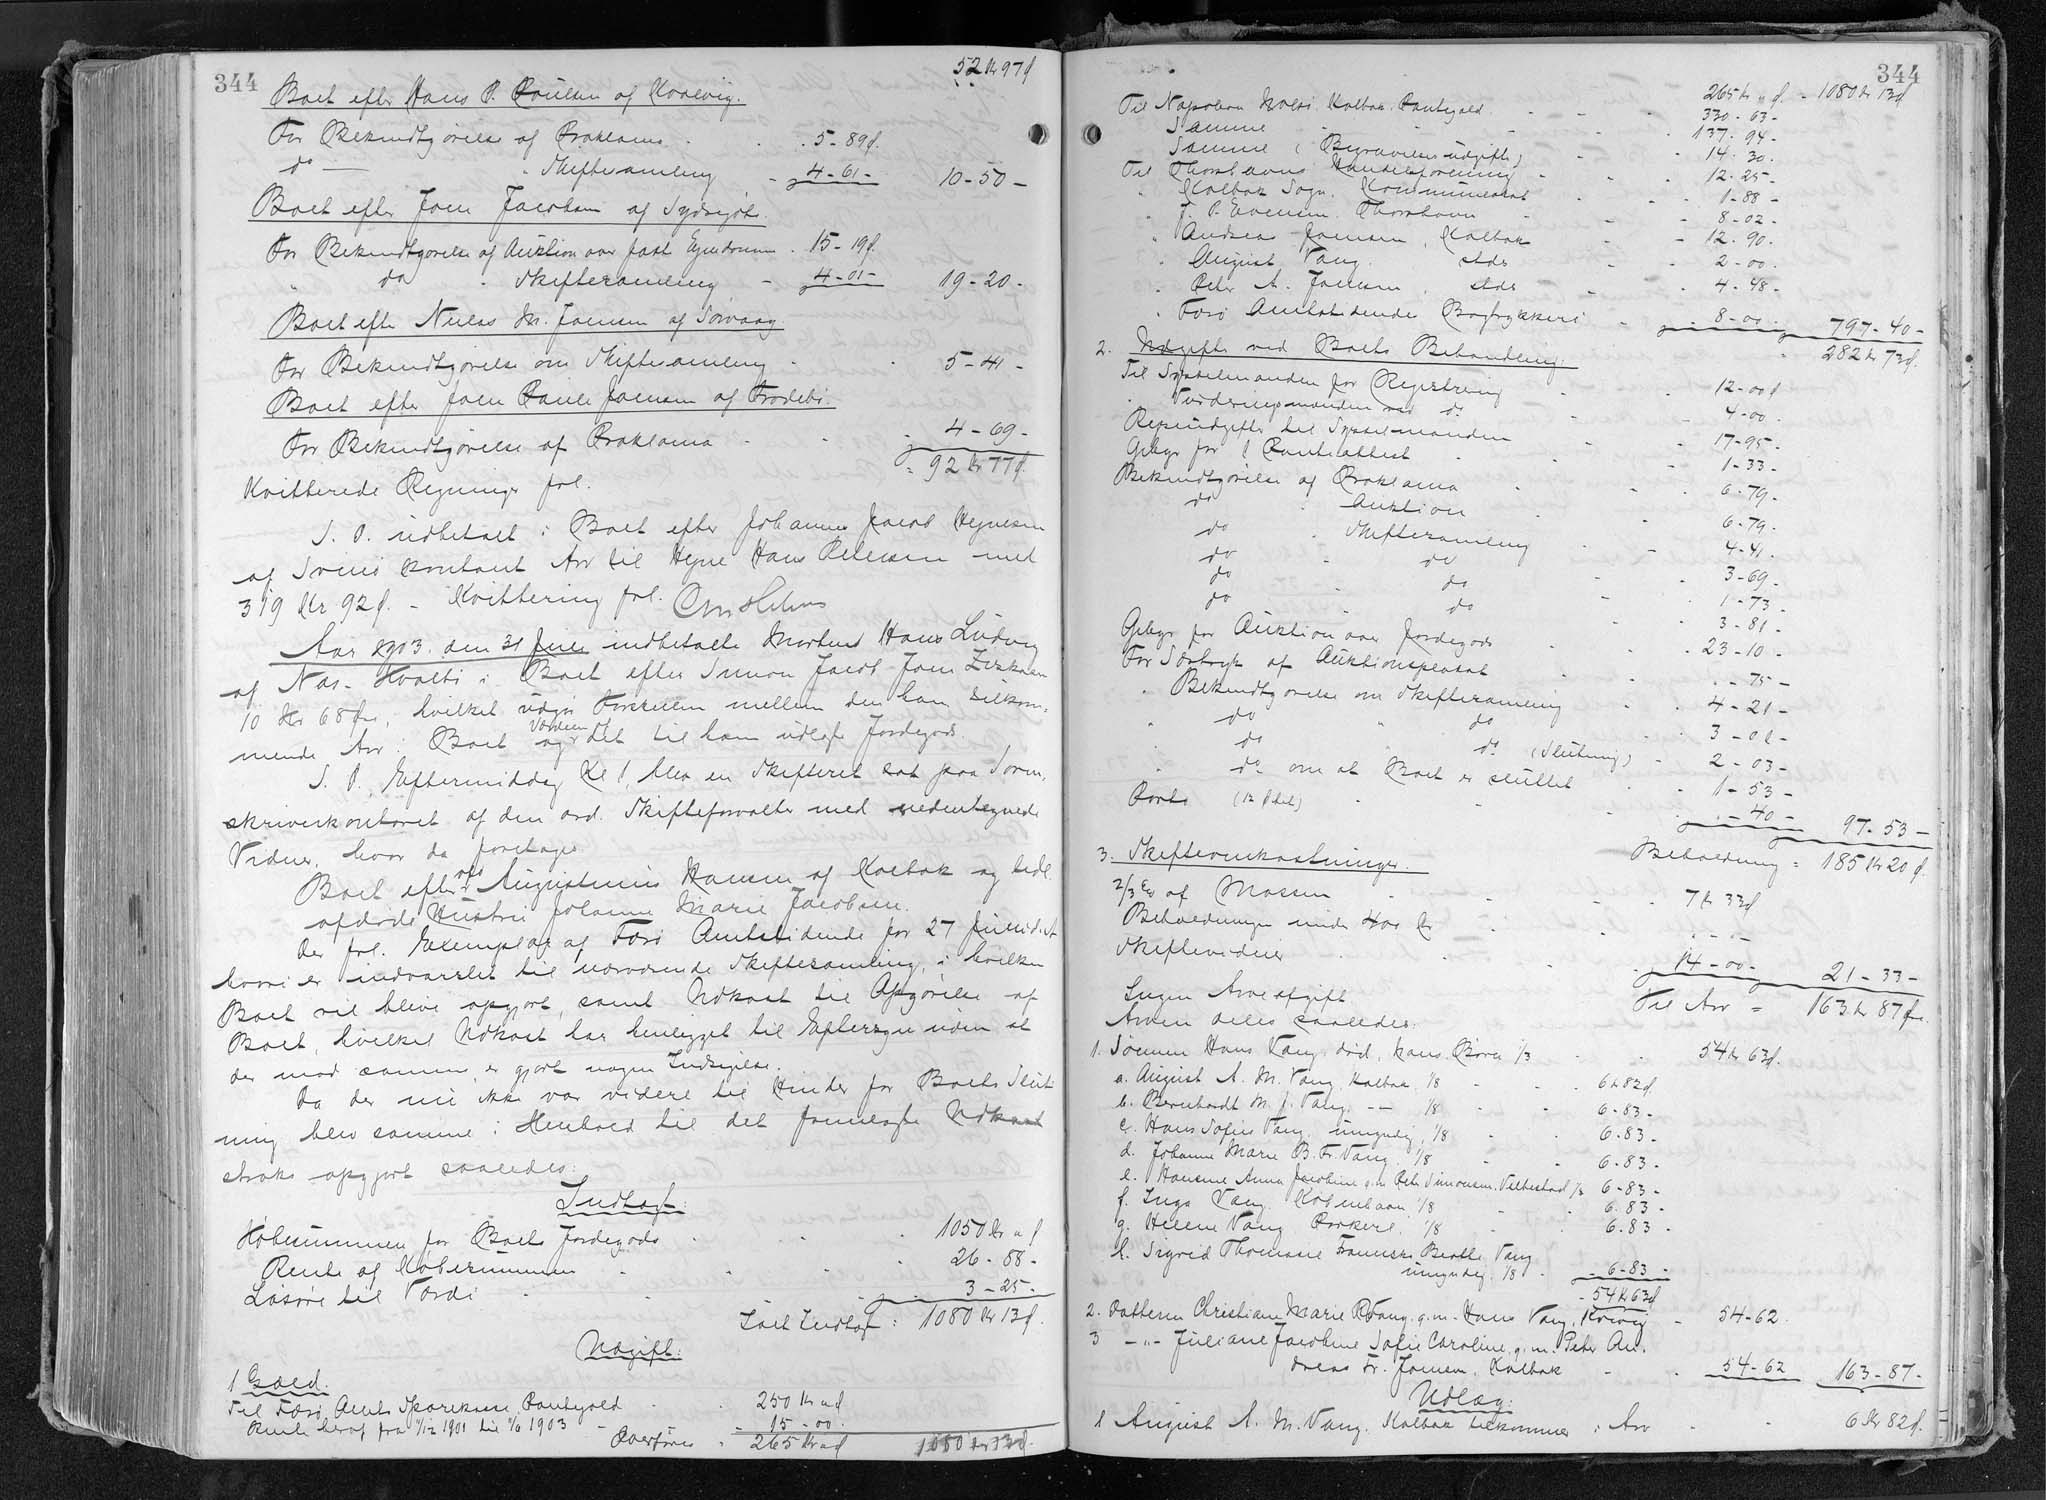 344
52 Kr 97 f
Boet efter Hans P. Poulsen af Kvalvig.
For Bekendtgjørelse af Proklama . . 5 - 89 f.
do — " Skiftesamling - 4 - 61 - 10 - 50 -
Boet efter Joen Jacobsen af Sydregjøte.
For Bekendtgjørelse af Auktion over fast Ejendom . 15 - 19 f.
" do " Skiftesamling - 4 - 01 - 19 - 20 -
Boet efter Niclas M. Joensen af Sørvaag.
For Bekendtgjørelse om Skiftesamling . . 5 - 41 -
Boet efter Joen Paule Joensen af Frodebø.
For Bekendtgjørelse af Proklama . . . 4 - 69 -
= 92 Kr 77 f.
Kvitterede Regninger frl.
S. D. udbetalt i Boet efter Johannes Jacob Hejnesen
af Svinø kontant Arv til Hejne Hans Petersen med
319 Kr 92 f. - Kvittering frl.
Aar 1903 den 31 Juli indbetalte Morten Hans Ludvig
af Nes - Hvalbø i Boet efter Simon Jacob Joen
10 Kr 68 Øre, hvilket udgør Forskellen mellem den ham tilkom-
mende Arv i Boet og Værdien det til ham udlagte Jordegods.
S. D. Eftermiddag Kl 1, blev en Skifteret sat paa Soren-
skriverkontoret af den ord. Skifteforvalter med nedentegnede
Vidner, hvor da foretages
Boet efter Augustinus Hansen af Kolbak og tidl.
afdøde Hustru Johanne Marie Jacobsen.
Der frl. Exemplar af Færø Amtstidende for 27 Juni d. A
hvori er indvarslet til nærværende Skiftesamling, i hvilken
Boet vil blive opgjort, samt Udkast til Opgjørelse af
Boet, hvilket Udkast har henligget til Eftersyn uden at
der mod samme er gjort nogen Indsigelse.
Da der nu ikke var videre til Hinder for Boets Slut-
ning blev samme i Henhold til det fremlagte Udkast
straks opgjort saaledes:
Indtægt:
Købesummen for Boets Jordegods . . . 1050 Kr " f
Rente af Købesummen . . . . 26 - 88 -
Løsøre til Værdi . . . . 3 - 25 -
Ialt Indtægt : 1080 Kr 13 f.
Udgift:
1 Gæld.
Til Færø Amts Sparekasse Pantegæld . . 250 Kr " f
Rente heraf fra 11/12 1901 til 11/6 1903 - 15 - 00 .
Overføres . 265 Kr " f 1080 Kr 13 f.
344
265 Kr " f. - 1080 Kr 13 f
Til Napoleon Nolsø Kolbak. Pantegæld . . . 330 - 63 -
Samme . . . 137 - 94 -
Samme (Begravelsesudgifter) . . 14 - 30 .
Til Thorshavns Handelsforening . . . 12 - 25 -
" Kolbak Sogn. Kommunekasse . . 1 - 88 -
" J. P. Evensen Thorshavn . . 8 - 02 -
" Andreas Joensen, Kolbak . . 12 - 90 .
" August Vang. stds . . 2 - 00 .
" Peter A. Joensen, stds . . 4 - 48 -
" Færø Amtstidendes Bogtrykkeri . 8 - 00 . 797 - 40 -
282 Kr 73 f.
2. Udgifter ved Boets Behandling.
Til Sysselmanden for Registrering . . 12 - 00 f
Vurderingsmænden ved do . . 4 - 00 .
Rejseudgifter til Sysselmanden . . 17 - 95 -
Gebyr for 1 Panteattest . . 1 - 33 -
Bekendtgjørelse af Proklama . . 6 - 79 -
do " Auktion . . 6 - 79 -
do " Skiftesamling . . 4 - 41 -
do " do . . 3 - 69 -
do do . . 1 - 73 -
do " do . . 3 - 81 -
Gebyr for Auktion over Jordegods . . 23 - 10 -
For Særtryk af Auktionsplakat . . " - 75 -
" Bekendtgjørelse om Skiftesamling . . 4 - 21 -
" do " do . . 3 - 01 -
" do " do (Slutning) . 2 - 03 -
" do om at Boet er sluttet . . 1 - 53 -
Porto . . . - 40 - 97 - 53 -
Beholdning = 185 Kr 20 f.
3. Skifteomkostninger.
2/3 % af Massen . . 7 Kr 33 f
Beholdningen under 400 Kr . . " - " -
Skiftevidner . . 14 - 00 . 21 - 33 -
Ingen Arveafgift Til Arv = 163 Kr 87 f.
Arven deles saaledes:
1. Sønnen Hans Vang død, hans Børn 1/3 . . 54 Kr 63 f.
a. August A. M. Vang, Kolbak, 1/8 . . 6 Kr 82 f.
b. Bernhardt M. J. Vang. - - 1/8 . . 6 - 83 -
c. Hans Sofus Vang umyndig, 1/8 . . 6 - 83 -
d. Johanne Marie B. Fr. Vang. 1/8 . . 6 - 83 -
e. Hansine Anna Jacobine g.m. Peter Simonsen, Velbestad 1/8 6 - 83 -
f. Inga Vang København 1/8 . 6 - 83 -
g. Helene Vang 1/8 . . 6 - 83 -
h. Sigrid Thomasie Franciska Beate Vang
umyndig, 1/8 . 6 - 83 -
54 Kr 63 f
2. Datteren Christiane Marie Vang g.m. Hans Vang, Kvivig - 54 - 62 .
3 - " - Juliane Jacobine Sofie Caroline g.m. Peter An-
dreas Fr. Joensen, Kolbak . . 54 - 62 163 - 87 -
Udlæg:
1 August A. M. Vang. Kolbak tilkommer i Arv . 6 Kr 82 f.